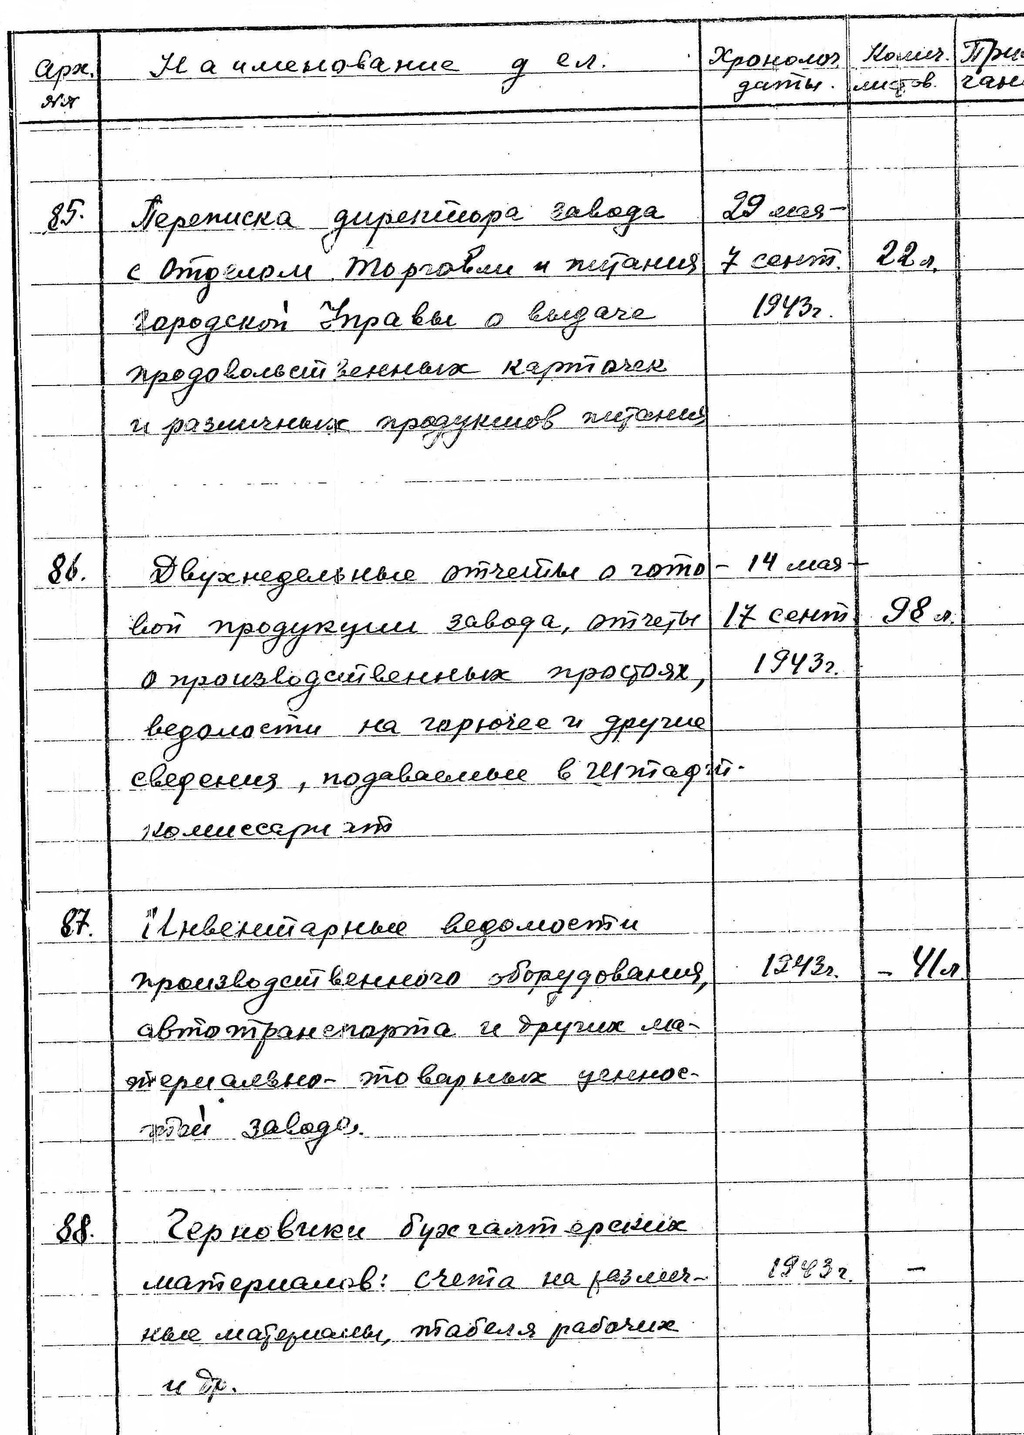 Арх. Наименование дел. Хронолог. Колич. При
№№ даты. листов. чани
85. Переписка директора завода 29 мая-
с Отделом Торговли и питания 7 сент. 22 л.
Городской Управы о выдаче 1943г.
продовольственных карточек
и различных продуктов питания
86. Двухнедельные отчеты о гото- 14 мая-
вой продукции завода, отчеты 17 сент 98 л.
о производственных простоях, 1943г.
ведомости на горючее и другие
сведения, подаваемые в Штадт-
комиссариат
87. Инвентарные ведомости
производственного оборудования, 1943г. - 41 л
автотранспорта и других ма-
териально-товарных ценнос-
тей завода.
88. Черновики бухгалтерских
материалов: счета на различ- 1943г. -
ные материалы, табеля рабочих
и др.